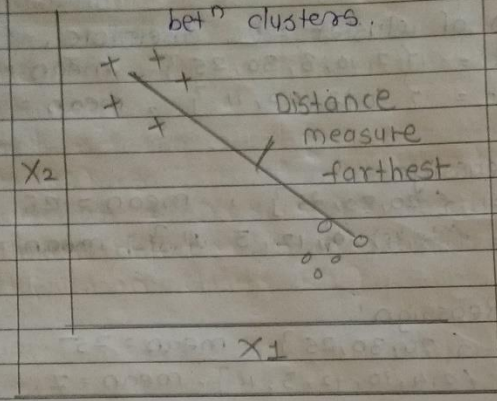 betⁿ clusters.
Distance
measure
farthest
X2
X1